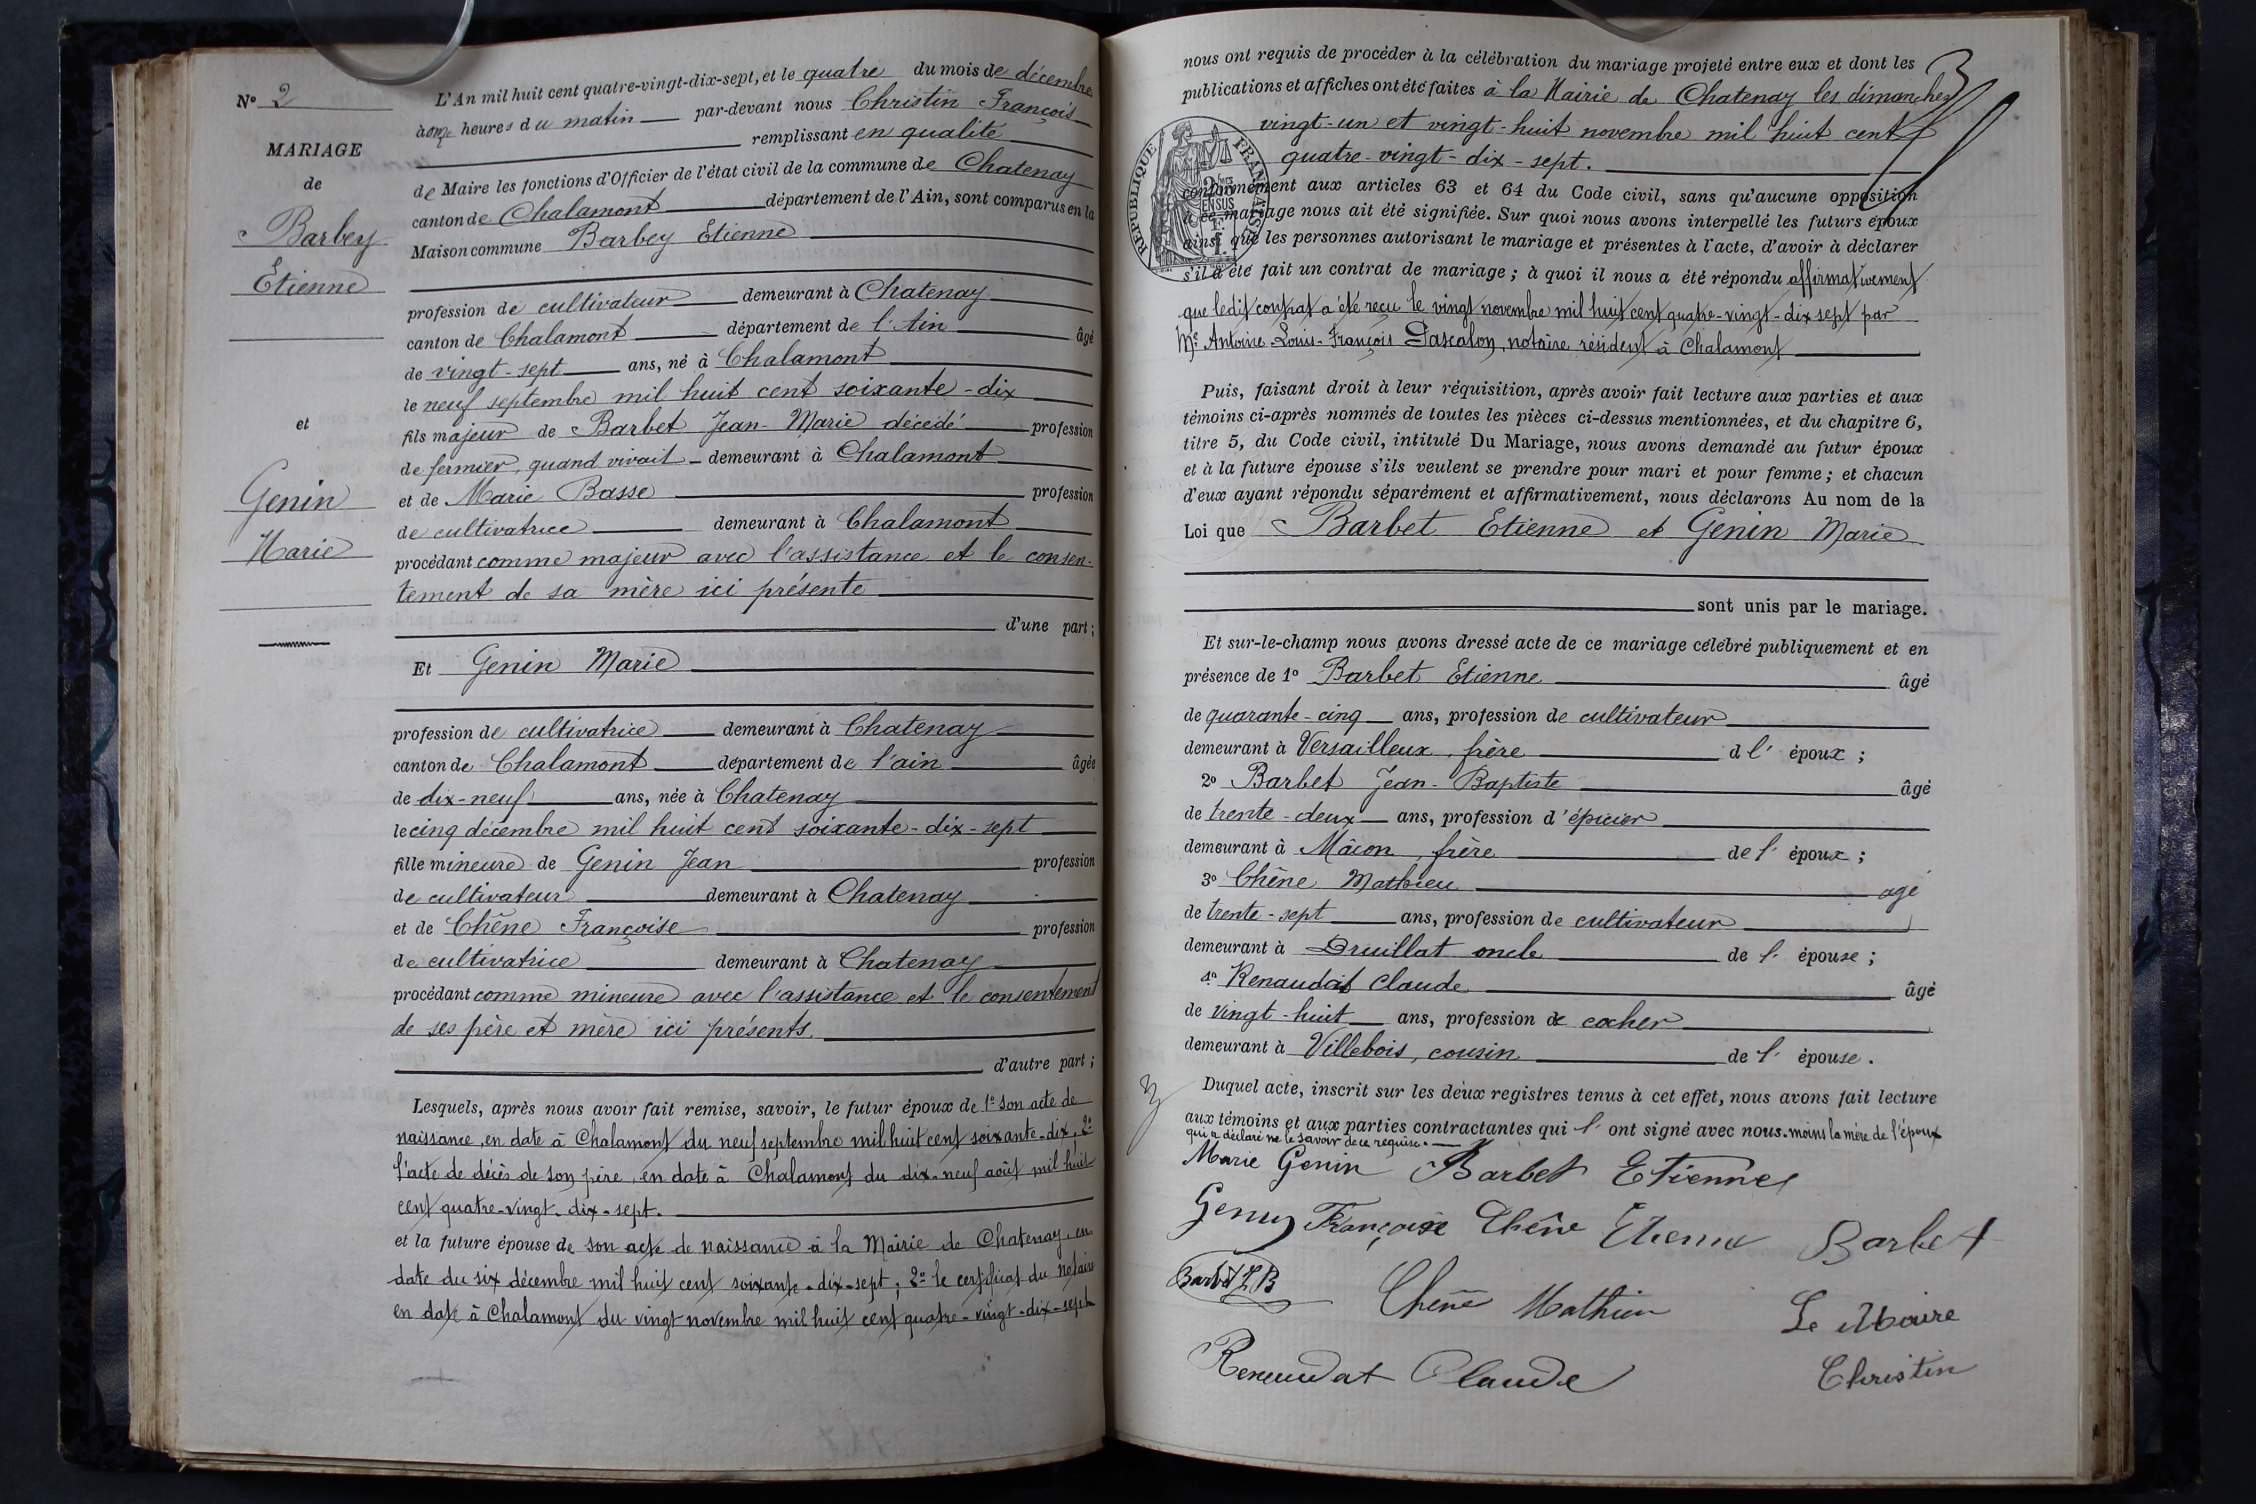 N° 2
MARIAGE
de
Barbey
Etienne
et
Genin
Marie
L'An mil huit cent quatre-vingt-dix-sept, et le quatre du mois de décembre
à onze heures du matin par-devant nous Christin François
remplissant en qualité
de Maire les fonctions d'Officier de l'état civil de la commune de Chatenay
canton de Chalamont département de l'Ain, sont comparus en la
Maison commune Barbey Etienne
profession de cultivateur demeurant à Chatenay
canton de Chalamont département de l'Ain âgé
de vingt-sept ans, né à Chalamont
le neuf septembre mil huit cent soixante-dix
fils majeur de Barbet Jean-Marie décédé profession
de fermier, quand vivait demeurant à Chalamont
et de Marie Basse profession
de cultivatrice demeurant à Chalamont
procédant comme majeur avec l'assistance et le consen-
tement de sa mère ici présente
d'une part;
Et Genin Marie
profession de cultivatrice demeurant à Chatenay
canton de Chalamont département de l'ain âgée
de dix-neuf ans, née à Chatenay
le cinq décembre mil huit cent soixante-dix-sept
fille mineure de Genin Jean profession
de cultivateur demeurant à Chatenay
et de Chêne Françoise profession
de cultivatrice demeurant à Chatenay
procédant comme mineure avec l'assistance et le consentement
de ses père et mère ici présents.
d'autre part;
Lesquels, après nous avoir fait remise, savoir, le futur époux de 1° son acte de
naissance, en date à Chalamont du neuf septembre mil huit cent soixante-dix, 2°
l'acte de décès de son père, en date à Chalamont du dix-neuf août mil huit
cent quatre-vingt-dix-sept.
et la future épouse de son acte de naissance à la Mairie de Chatenay, en
date du six décembre mil huit cent soixante-dix-sept; 2° le certificat du notaire
en date à Chalamont du vingt novembre mil huit cent quatre-vingt-dix-sept
3
nous ont requis de procéder à la célébration du mariage projeté entre eux et dont les
publications et affiches ont été faites à la Mairie de Chatenay les dimanches
vingt-un et vingt-huit novembre mil huit cent
quatre-vingt-dix-sept.
RÉPUBLIQUE FRANÇAISE
conformément aux articles 63 et 64 du Code civil, sans qu'aucune opposition
à ce mariage nous ait été signifiée. Sur quoi nous avons interpellé les futurs époux
ainsi que les personnes autorisant le mariage et présentes à l'acte, d'avoir à déclarer
s'il a été fait un contrat de mariage; à quoi il nous a été répondu affirmativement
que ledit contrat a été reçu le vingt novembre mil huit cent quatre-vingt-dix sept par
Me Antoine-Louis-François Pascalon, notaire résident à Chalamont
Puis, faisant droit à leur réquisition, après avoir fait lecture aux parties et aux
témoins ci-après nommés de toutes les pièces ci-dessus mentionnées, et du chapitre 6,
titre 5, du Code civil, intitulé Du Mariage, nous avons demandé au futur époux
et à la future épouse s'ils veulent se prendre pour mari et pour femme; et chacun
d'eux ayant répondu séparément et affirmativement, nous déclarons Au nom de la
Loi que Barbet Etienne et Genin Marie
sont unis par le mariage.
Et sur-le-champ nous avons dressé acte de ce mariage célébré publiquement et en
présence de 1° Barbet Etienne âgé
de quarante-cinq ans, profession de cultivateur
demeurant à Versailleux, frère d l' époux;
2° Barbet Jean-Baptiste âgé
de trente-deux ans, profession d'épicier
demeurant à Mâcon, frère de l' époux;
3° Chêne Mathieu agé
de trente-sept ans, profession de cultivateur
demeurant à Druillat oncle de l' épouse;
4° Renaudat Claude âgé
de vingt-huit ans, profession de cocher
demeurant à Villebois, cousin de l' épouse.
Duquel acte, inscrit sur les deux registres tenus à cet effet, nous avons fait lecture
aux témoins et aux parties contractantes qui l' ont signé avec nous. moins la mère de l'époux
qui a déclaré ne le savoir de ce requise.
Marie Genin Barbet Etienne
Genin Françoise Chêne Etienne Barbet
Barbet J B Chêne Mathieu Le Maire
Renaudat Claude Christin